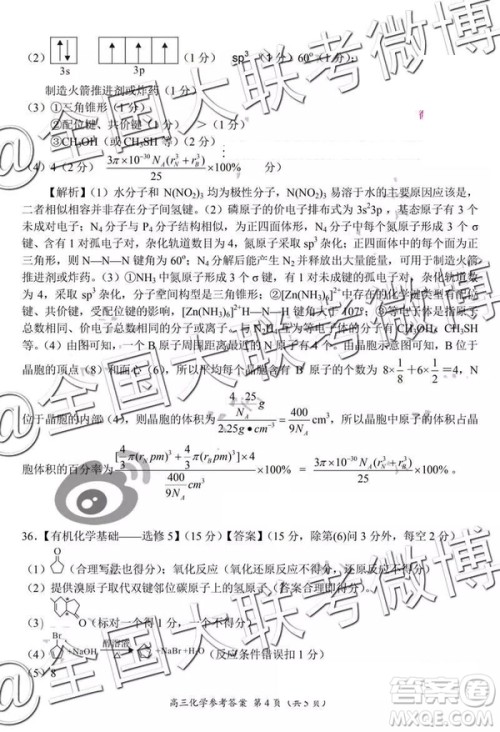 (2) 3s 3p (1分) sp³ (1分) 60°(1分);
制造火箭推进剂或炸药(1分)
(3)①三角锥形(1分)
②配位键、共价键(1分) >(1分)
③CH₃OH(或CH₃SH等)(1分)
(4)4(2分) 3π×10⁻³⁰N_A(r_N³+r_B³)/25 ×100% 分)
【解析】(1)水分子和N(NO₂)₃均为极性分子,N(NO₂)₃易溶于水的主要原因应该是,
二者相似相容并非存在分子间氢键。(2)磷原子的价电子排布式为3s²3p ,基态原子有3个
未成对电子;N₄分子与P₄分子结构相同,为正四面体形分子,N₄分子中每个氮原子形成三个σ
键、含有1个孤电子对,杂化轨道数目为4,氮原子杂化方式为sp³杂化;正四面体中的每个面为正
三角形,则N—N—N键角为60°;N₄分解后能产生N₂并释放出大量能量,可用于制造火箭
推进剂或炸药。(3)①NH₃中氮原子形成3个σ键,有1对未成键的孤对电子,杂化轨道数
为4,采取sp³杂化,分子空间构型是三角锥形;②[Zn(NH₃)₆]²⁺中的化学键类型有配位
键、共价键,受配位键的影响,[Zn(NH₃)₆]²⁺H—N—H键角大于107°;③等电子体是指原子
总数相同、价电子总数也相同的微粒,与N₂H₅⁺互为等电子体的分子有CH₃OH、CH₃SH
等。(4)由图可知,一个B原子周围距离最近的N原子有4个;由晶胞示意图可知,B原子位于
晶胞的顶点(8)和面心(6),所以平均每个晶胞含有B原子的个数为8×1/8+6×1/2=4,N
位于晶胞的内部(4),则晶胞的体积为 (4/N_A×25g)/(2.25g•cm⁻³)=400/9N_A cm³,所以晶胞中原子的体积占晶
胞体积的百分率为 {[4/3π(r_N pm)³+4/3π(r_B pm)³]×4}/(400/9N_A cm³)×100% = 3π×10⁻³⁰N_A(r_N³+r_B³)/25×100%。
36.【有机化学基础——选修5】(15分)【答案】(15分,除第(6)问3分外,每空2分)
(1) (合理写法也可得分);氧化反应(催化氧化反应不得分,还原反应不得分)
(2)提供溴原子取代双键邻位碳原子上的氢原子(答案合理即可得分)。
(3) O(标对一个得1分,一对一错不得分)
(4) Br +NaOH 醇溶液 +NaBr (反应条件错误扣1分)
(5)8
高三化学参考答案 第4页(共5页)
@全国大联考微博
@全国大联考微博
@全国大联考微博
答案圈